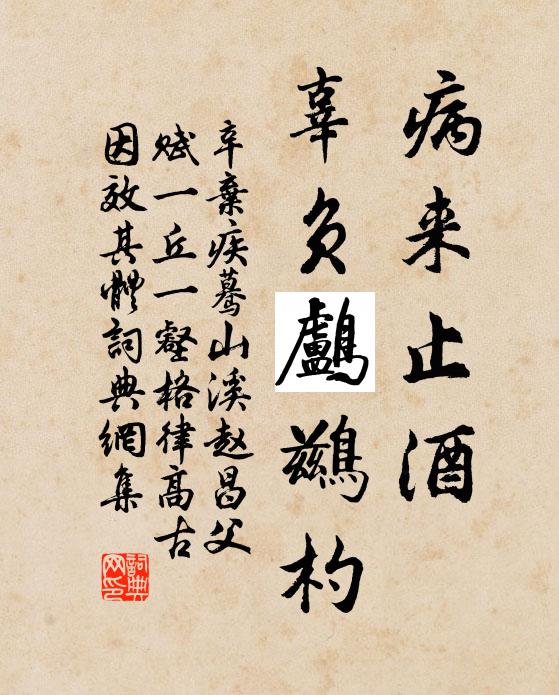 病来止酒
辜负鸕鷀杓
辛棄疾蓦山溪赵昌父
赋一丘一壑格律高古
因效其體詞典網集
詞典网印